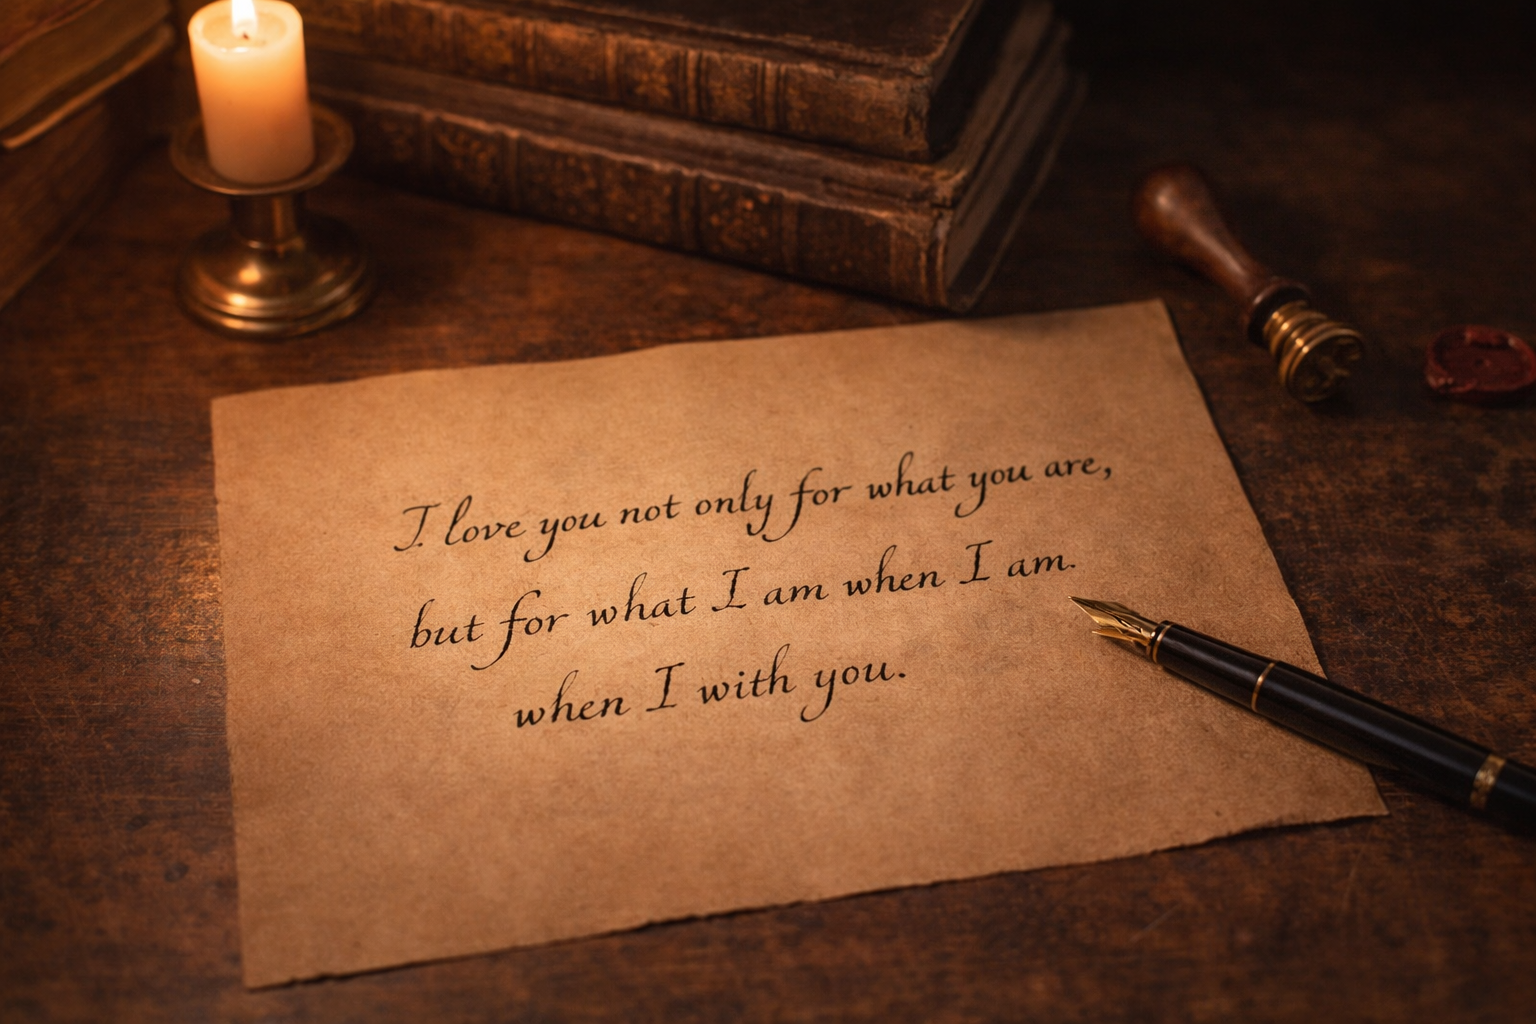 I love you not only for what you are,
but for what I am when I am.
when I with you.